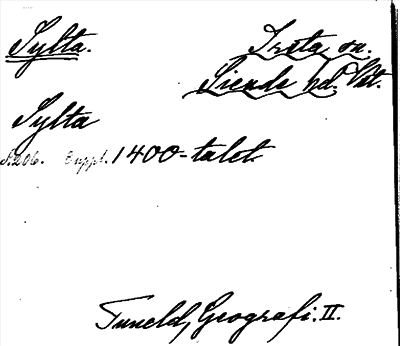 Sylta. Irsta sn.
Siende hd. Vst.
Sylta
S. 206. Suppl. 1400-talet.
Tuneld, Geografi. II.